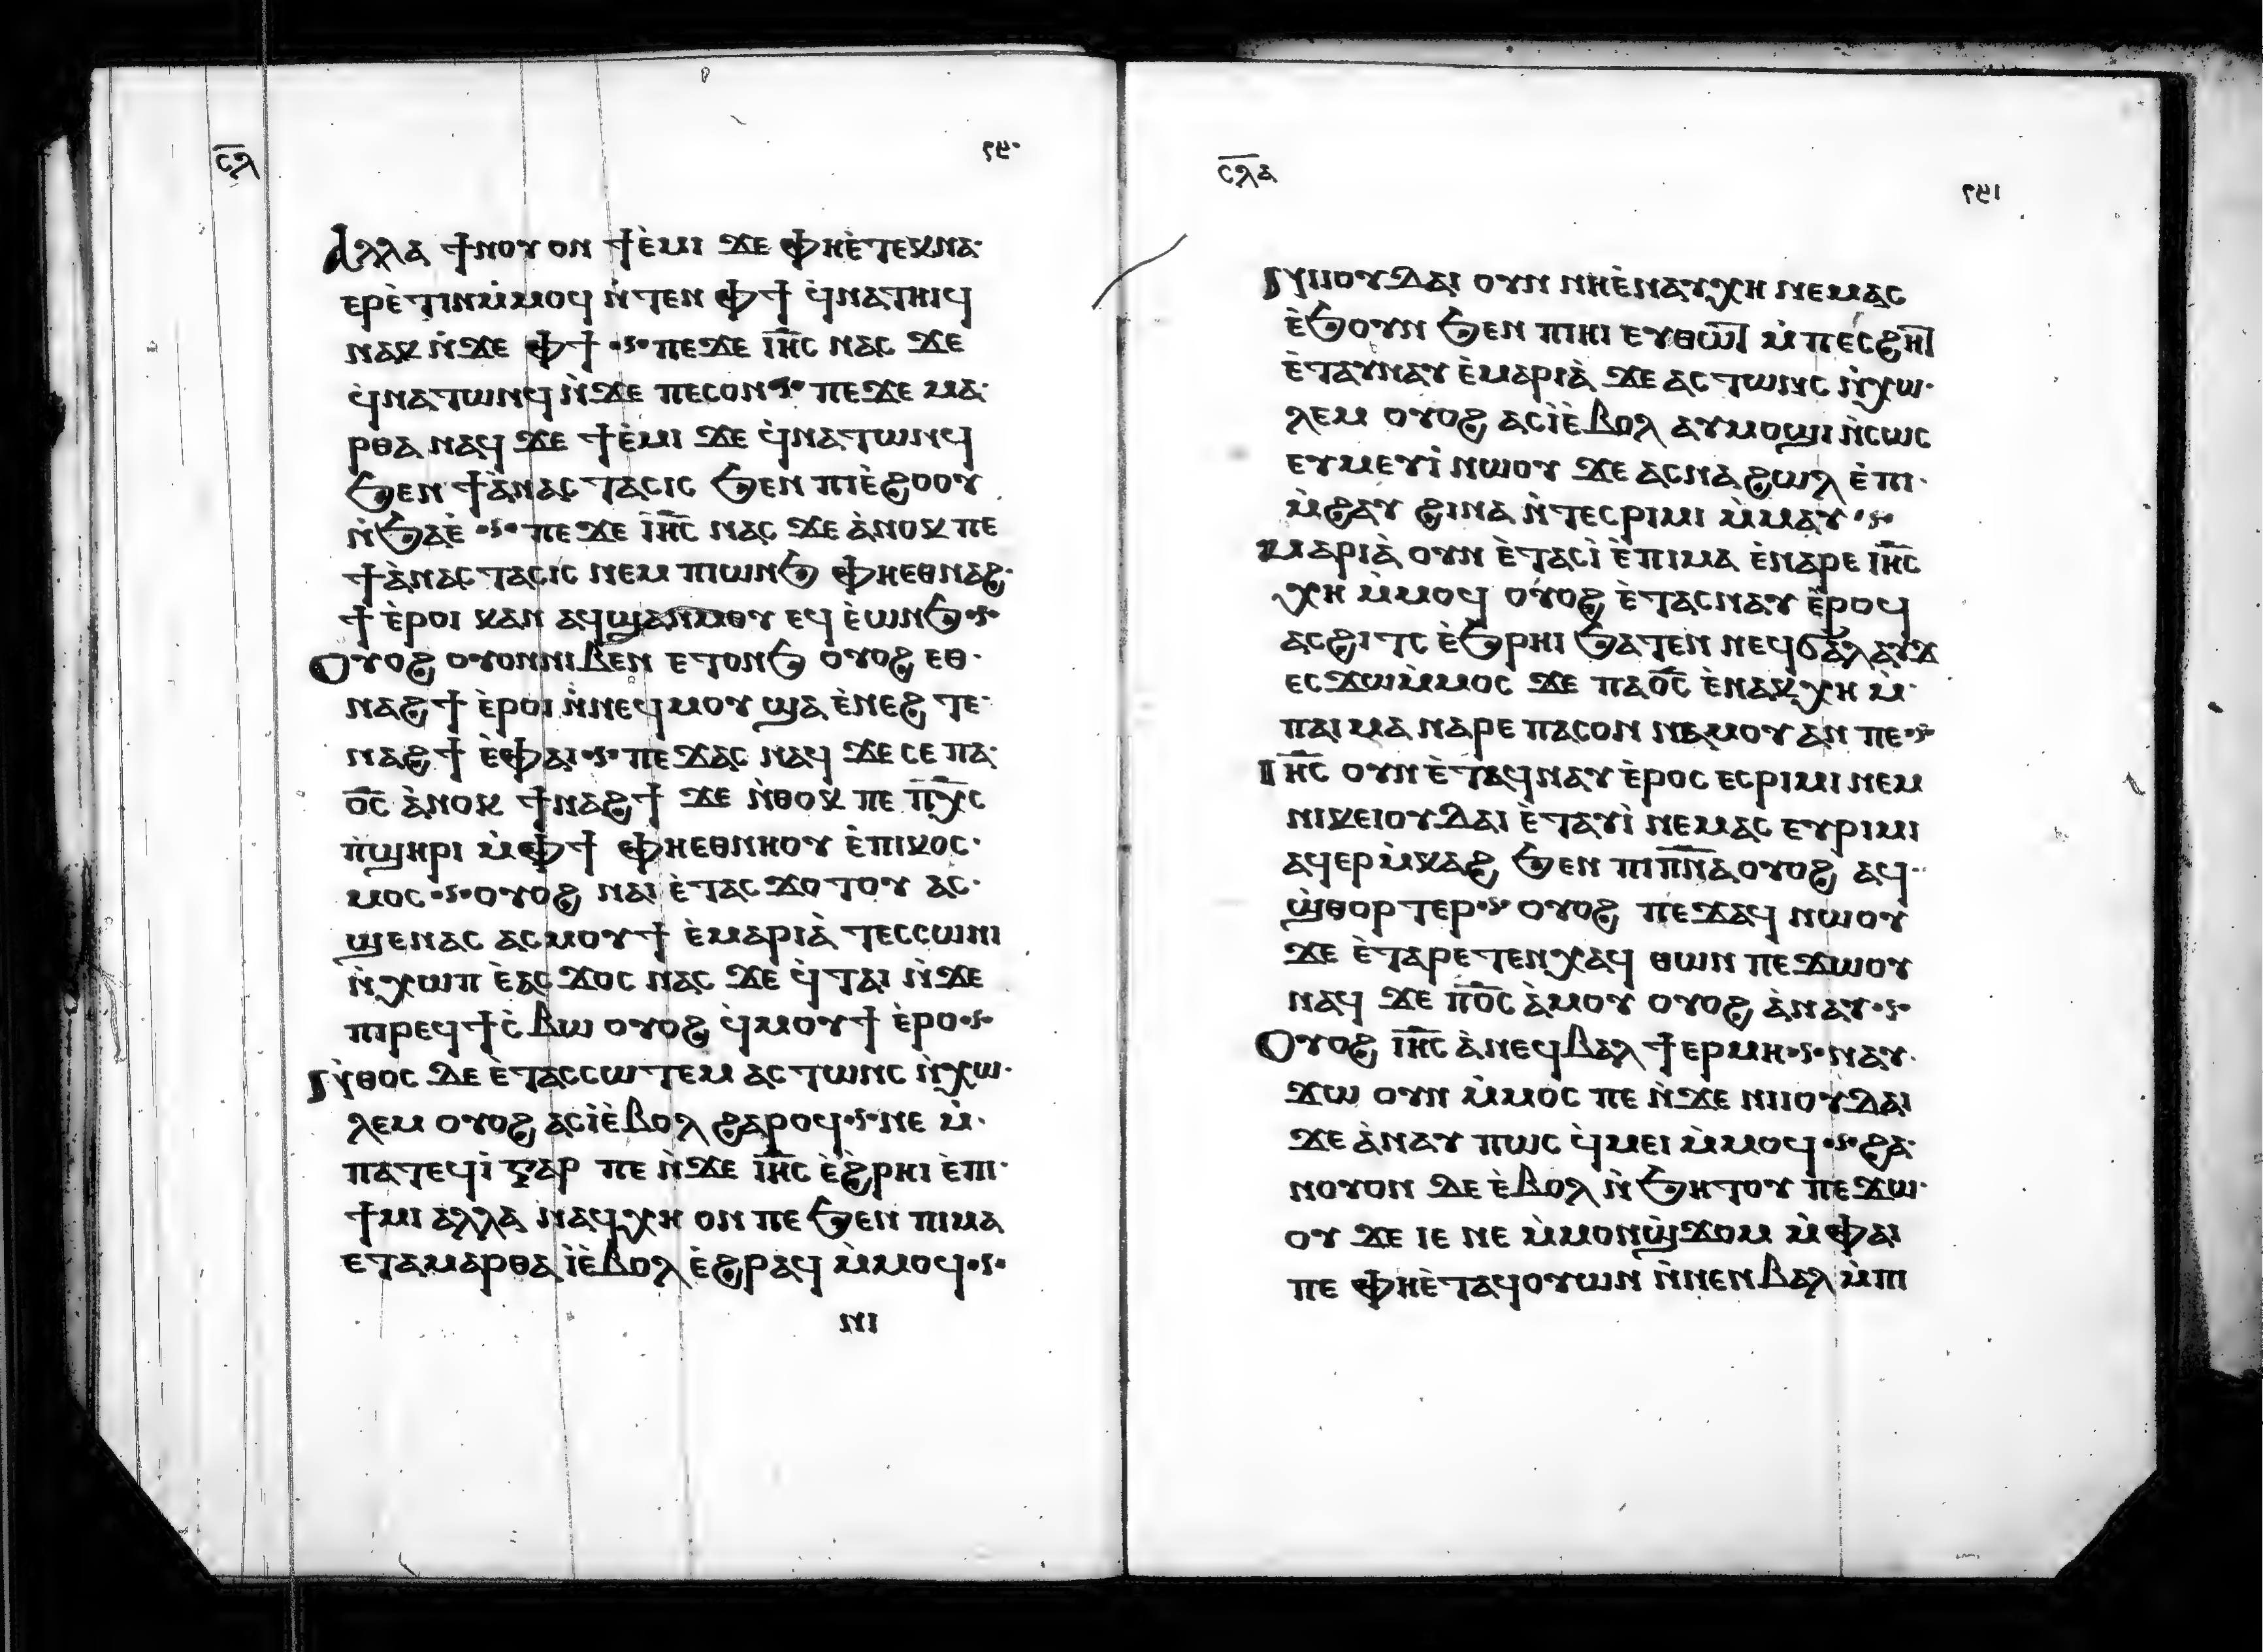 ⲥ̅ⲗ̅
ⲁⲗⲗⲁ ϯⲛⲟⲩ ⲟⲛ ϯⲉ̀ⲙⲓ ϫⲉ ⲫⲏⲉ̀ⲧⲉⲕⲛⲁ·
ⲉⲣⲉ̀ⲧⲓⲛⲙ̀ⲙⲟϥ ⲛ̀ⲧⲉⲛ ⲫϯ ϥ̀ⲛⲁⲧⲏⲓϥ
ⲛⲁⲕ ⲛ̀ϫⲉ ⲫϯ ·ⲋ· ⲡⲉϫⲉ ⲓ̅ⲏ̅ⲥ̅ ⲛⲁⲥ ϫⲉ
ϥ̀ⲛⲁⲧⲱⲛϥ ⲛ̀ϫⲉ ⲡⲉⲥⲟⲛ ·ⲋ· ⲡⲉϫⲉ ⲙⲁ·
ⲣⲑⲁ ⲛⲁϥ ϫⲉ ϯⲉ̀ⲙⲓ ϫⲉ ϥ̀ⲛⲁⲧⲱⲛϥ
ϧⲉⲛ ϯⲁ̀ⲛⲁⲥⲧⲁⲥⲓⲥ ϧⲉⲛ ⲡⲓⲉ̀ϩⲟⲟⲩ
ⲛ̀ϧⲁⲉ̀ ·ⲋ· ⲡⲉϫⲉ ⲓ̅ⲏ̅ⲥ̅ ⲛⲁⲥ ϫⲉ ⲁ̀ⲛⲟⲕ ⲡⲉ
ϯⲁ̀ⲛⲁⲥⲧⲁⲥⲓⲥ ⲛⲉⲙ ⲡⲓⲱⲛϧ ⲫⲏⲉⲑⲛⲁϩ·
ϯ ⲉ̀ⲣⲟⲓ ⲕⲁⲛ ⲁϥϣⲁⲛⲙⲟⲩ ⲉϥⲉ̀ⲱⲛϧ ·ⲋ·
ⲟⲩⲟϩ ⲟⲩⲟⲛⲛⲓⲃⲉⲛ ⲉⲧⲟⲛϧ ⲟⲩⲟϩ ⲉⲑ·
ⲛⲁϩϯ ⲉ̀ⲣⲟⲓ ⲛ̀ⲛⲉϥⲙⲟⲩ ϣⲁ ⲉ̀ⲛⲉϩ ⲧⲉ·
ⲛⲁϩϯ ⲉ̀ⲫⲁⲓ ·ⲋ· ⲡⲉϫⲁⲥ ⲛⲁϥ ϫⲉ ⲥⲉ ⲡⲁ·
ⲟ̅ⲥ̅ ⲁ̀ⲛⲟⲕ ϯⲛⲁϩϯ ϫⲉ ⲛ̀ⲑⲟⲕ ⲡⲉ ⲡ̅ⲭ̅ⲥ
ⲡ̀ϣⲏⲣⲓ ⲙ̀ⲫϯ ⲫⲏⲉⲑⲛⲏⲟⲩ ⲉ̀ⲡⲓⲕⲟⲥ·
ⲙⲟⲥ ·ⲋ· ⲟⲩⲟϩ ⲛⲁⲓ ⲉ̀ⲧⲁⲥϫⲟⲧⲟⲩ ⲁⲥ·
ϣⲉⲛⲁⲥ ⲁⲥⲙⲟⲩϯ ⲉ̀ⲙⲁⲣⲓⲁ̀ ⲧⲉⲥⲥⲱⲛⲓ
ⲛ̀ⲭⲱⲡ ⲉ̀ⲁⲥϫⲟⲥ ⲛⲁⲥ ϫⲉ ϥ̀ⲧⲁⲓ ⲛ̀ϫⲉ
ⲡⲓⲣⲉϥϯⲥ̀ⲃⲱ ⲟⲩⲟϩ ϥ̀ⲙⲟⲩϯ ⲉ̀ⲣⲟ ·ⲋ·
ⲛ̀ⲑⲟⲥ ⲇⲉ ⲉ̀ⲧⲁⲥⲥⲱⲧⲉⲙ ⲁⲥⲧⲱⲛⲥ ⲛ̀ⲭⲱ·
ⲗⲉⲙ ⲟⲩⲟϩ ⲁⲥⲓ̀ⲉ̀ⲃⲟⲗ ϩⲁⲣⲟϥ ·ⲋ· ⲛⲉ ⲙ̀·
ⲡⲁⲧⲉϥⲓ̀ ⲅⲁⲣ ⲡⲉ ⲛ̀ϫⲉ ⲓ̅ⲏ̅ⲥ̅ ⲉ̀ϩ̀ⲣⲏⲓ ⲉ̀ⲡⲓ·
ϯⲙⲓ ⲁⲗⲗⲁ ⲛⲁϥⲭⲏ ⲟⲛ ⲡⲉ ϧⲉⲛ ⲡⲓⲙⲁ
ⲉⲧⲁⲙⲁⲣⲑⲁ ⲓ̀ⲉ̀ⲃⲟⲗ ⲉ̀ϩⲣⲁϥ ⲙ̀ⲙⲟϥ ·ⲋ·
ⲛⲓ
ⲥ̅ⲗ̅ⲁ
ⲛⲓⲓⲟⲩⲇⲁⲓ ⲟⲩⲛ ⲛⲏⲉ̀ⲛⲁⲩⲭⲏ ⲛⲉⲙⲁⲥ
ⲉ̀ϧⲟⲩⲛ ϧⲉⲛ ⲡⲓⲏⲓ ⲉⲩⲑⲱ̅ⲧ ⲙ̀ⲡⲉⲥϩⲏ̅ⲧ
ⲉ̀ⲧⲁⲩⲛⲁⲩ ⲉ̀ⲙⲁⲣⲓⲁ̀ ϫⲉ ⲁⲥⲧⲱⲛⲥ ⲛ̀ⲭⲱ·
ⲗⲉⲙ ⲟⲩⲟϩ ⲁⲥⲓ̀ⲉ̀ⲃⲟⲗ ⲁⲩⲙⲟϣⲓ ⲛ̀ⲥⲱⲥ
ⲉⲩⲙⲉⲩⲓ̀ ⲛⲱⲟⲩ ϫⲉ ⲁⲥⲛⲁϩⲱⲗ ⲉ̀ⲡⲓ·
ⲙ̀ϩⲁⲩ ϩⲓⲛⲁ ⲛ̀ⲧⲉⲥⲣⲓⲙⲓ ⲙ̀ⲙⲁⲩ ·ⲋ·
ⲙⲁⲣⲓⲁ̀ ⲟⲩⲛ ⲉ̀ⲧⲁⲥⲓ̀ ⲉ̀ⲡⲓⲙⲁ ⲉ̀ⲛⲁⲣⲉ ⲓ̅ⲏ̅ⲥ̅
ⲭⲏ ⲙ̀ⲙⲟϥ ⲟⲩⲟϩ ⲉ̀ⲧⲁⲥⲛⲁⲩ ⲉ̀ⲣⲟϥ
ⲁⲥϩⲓⲧⲥ ⲉ̀ϧⲣⲏⲓ ϧⲁⲧⲉⲛ ⲛⲉϥϭⲁⲗⲁⲩϫ
ⲉⲥϫⲱⲙ̀ⲙⲟⲥ ϫⲉ ⲡⲁⲟ̅ⲥ̅ ⲉ̀ⲛⲁⲕⲭⲏ ⲙ̀·
ⲡⲁⲓⲙⲁ ⲛⲁⲣⲉ ⲡⲁⲥⲟⲛ ⲛⲁⲙⲟⲩ ⲁⲛ ⲡⲉ ·ⲋ·
ⲓ̅ⲏ̅ⲥ̅ ⲟⲩⲛ ⲉ̀ⲧⲁϥⲛⲁⲩ ⲉ̀ⲣⲟⲥ ⲉⲥⲣⲓⲙⲓ ⲛⲉⲙ
ⲛⲓⲕⲉⲓⲟⲩⲇⲁⲓ ⲉ̀ⲧⲁⲩⲓ̀ ⲛⲉⲙⲁⲥ ⲉⲩⲣⲓⲙⲓ
ⲁϥⲉⲣⲙ̀ⲕⲁϩ ϧⲉⲛ ⲡⲓⲡ̅ⲛ̅ⲁ̅ ⲟⲩⲟϩ ⲁϥ·
ϣ̀ⲑⲟⲣⲧⲉⲣ ·ⲋ· ⲟⲩⲟϩ ⲡⲉϫⲁϥ ⲛⲱⲟⲩ
ϫⲉ ⲉ̀ⲧⲁⲣⲉⲧⲉⲛⲭⲁϥ ⲑⲱⲛ ⲡⲉϫⲱⲟⲩ
ⲛⲁϥ ϫⲉ ⲡ̅ⲟ̅ⲥ̅ ⲁ̀ⲙⲟⲩ ⲟⲩⲟϩ ⲁ̀ⲛⲁⲩ ·ⲋ·
ⲟⲩⲟϩ ⲓ̅ⲏ̅ⲥ̅ ⲁ̀ⲛⲉϥⲃⲁⲗ ϯⲉⲣⲙⲏ ·ⲋ· ⲛⲁⲩ·
ϫⲱ ⲟⲩⲛ ⲙ̀ⲙⲟⲥ ⲡⲉ ⲛ̀ϫⲉ ⲛⲓⲓⲟⲩⲇⲁⲓ
ϫⲉ ⲁ̀ⲛⲁⲩ ⲡⲱⲥ ϥ̀ⲙⲉⲓ ⲙ̀ⲙⲟϥ ·ⲋ· ϩⲁ·
ⲛⲟⲩⲟⲛ ⲇⲉ ⲉ̀ⲃⲟⲗ ⲛ̀ϧⲏⲧⲟⲩ ⲡⲉϫⲱ·
ⲟⲩ ϫⲉ ⲓⲉ ⲛⲉ ⲙ̀ⲙⲟⲛϣ̀ϫⲟⲙ ⲙ̀ⲫⲁⲓ
ⲡⲉ ⲫⲏⲉ̀ⲧⲁϥⲟⲩⲱⲛ ⲛ̀ⲛⲉⲛⲃⲁⲗ ⲙ̀ⲡⲓ